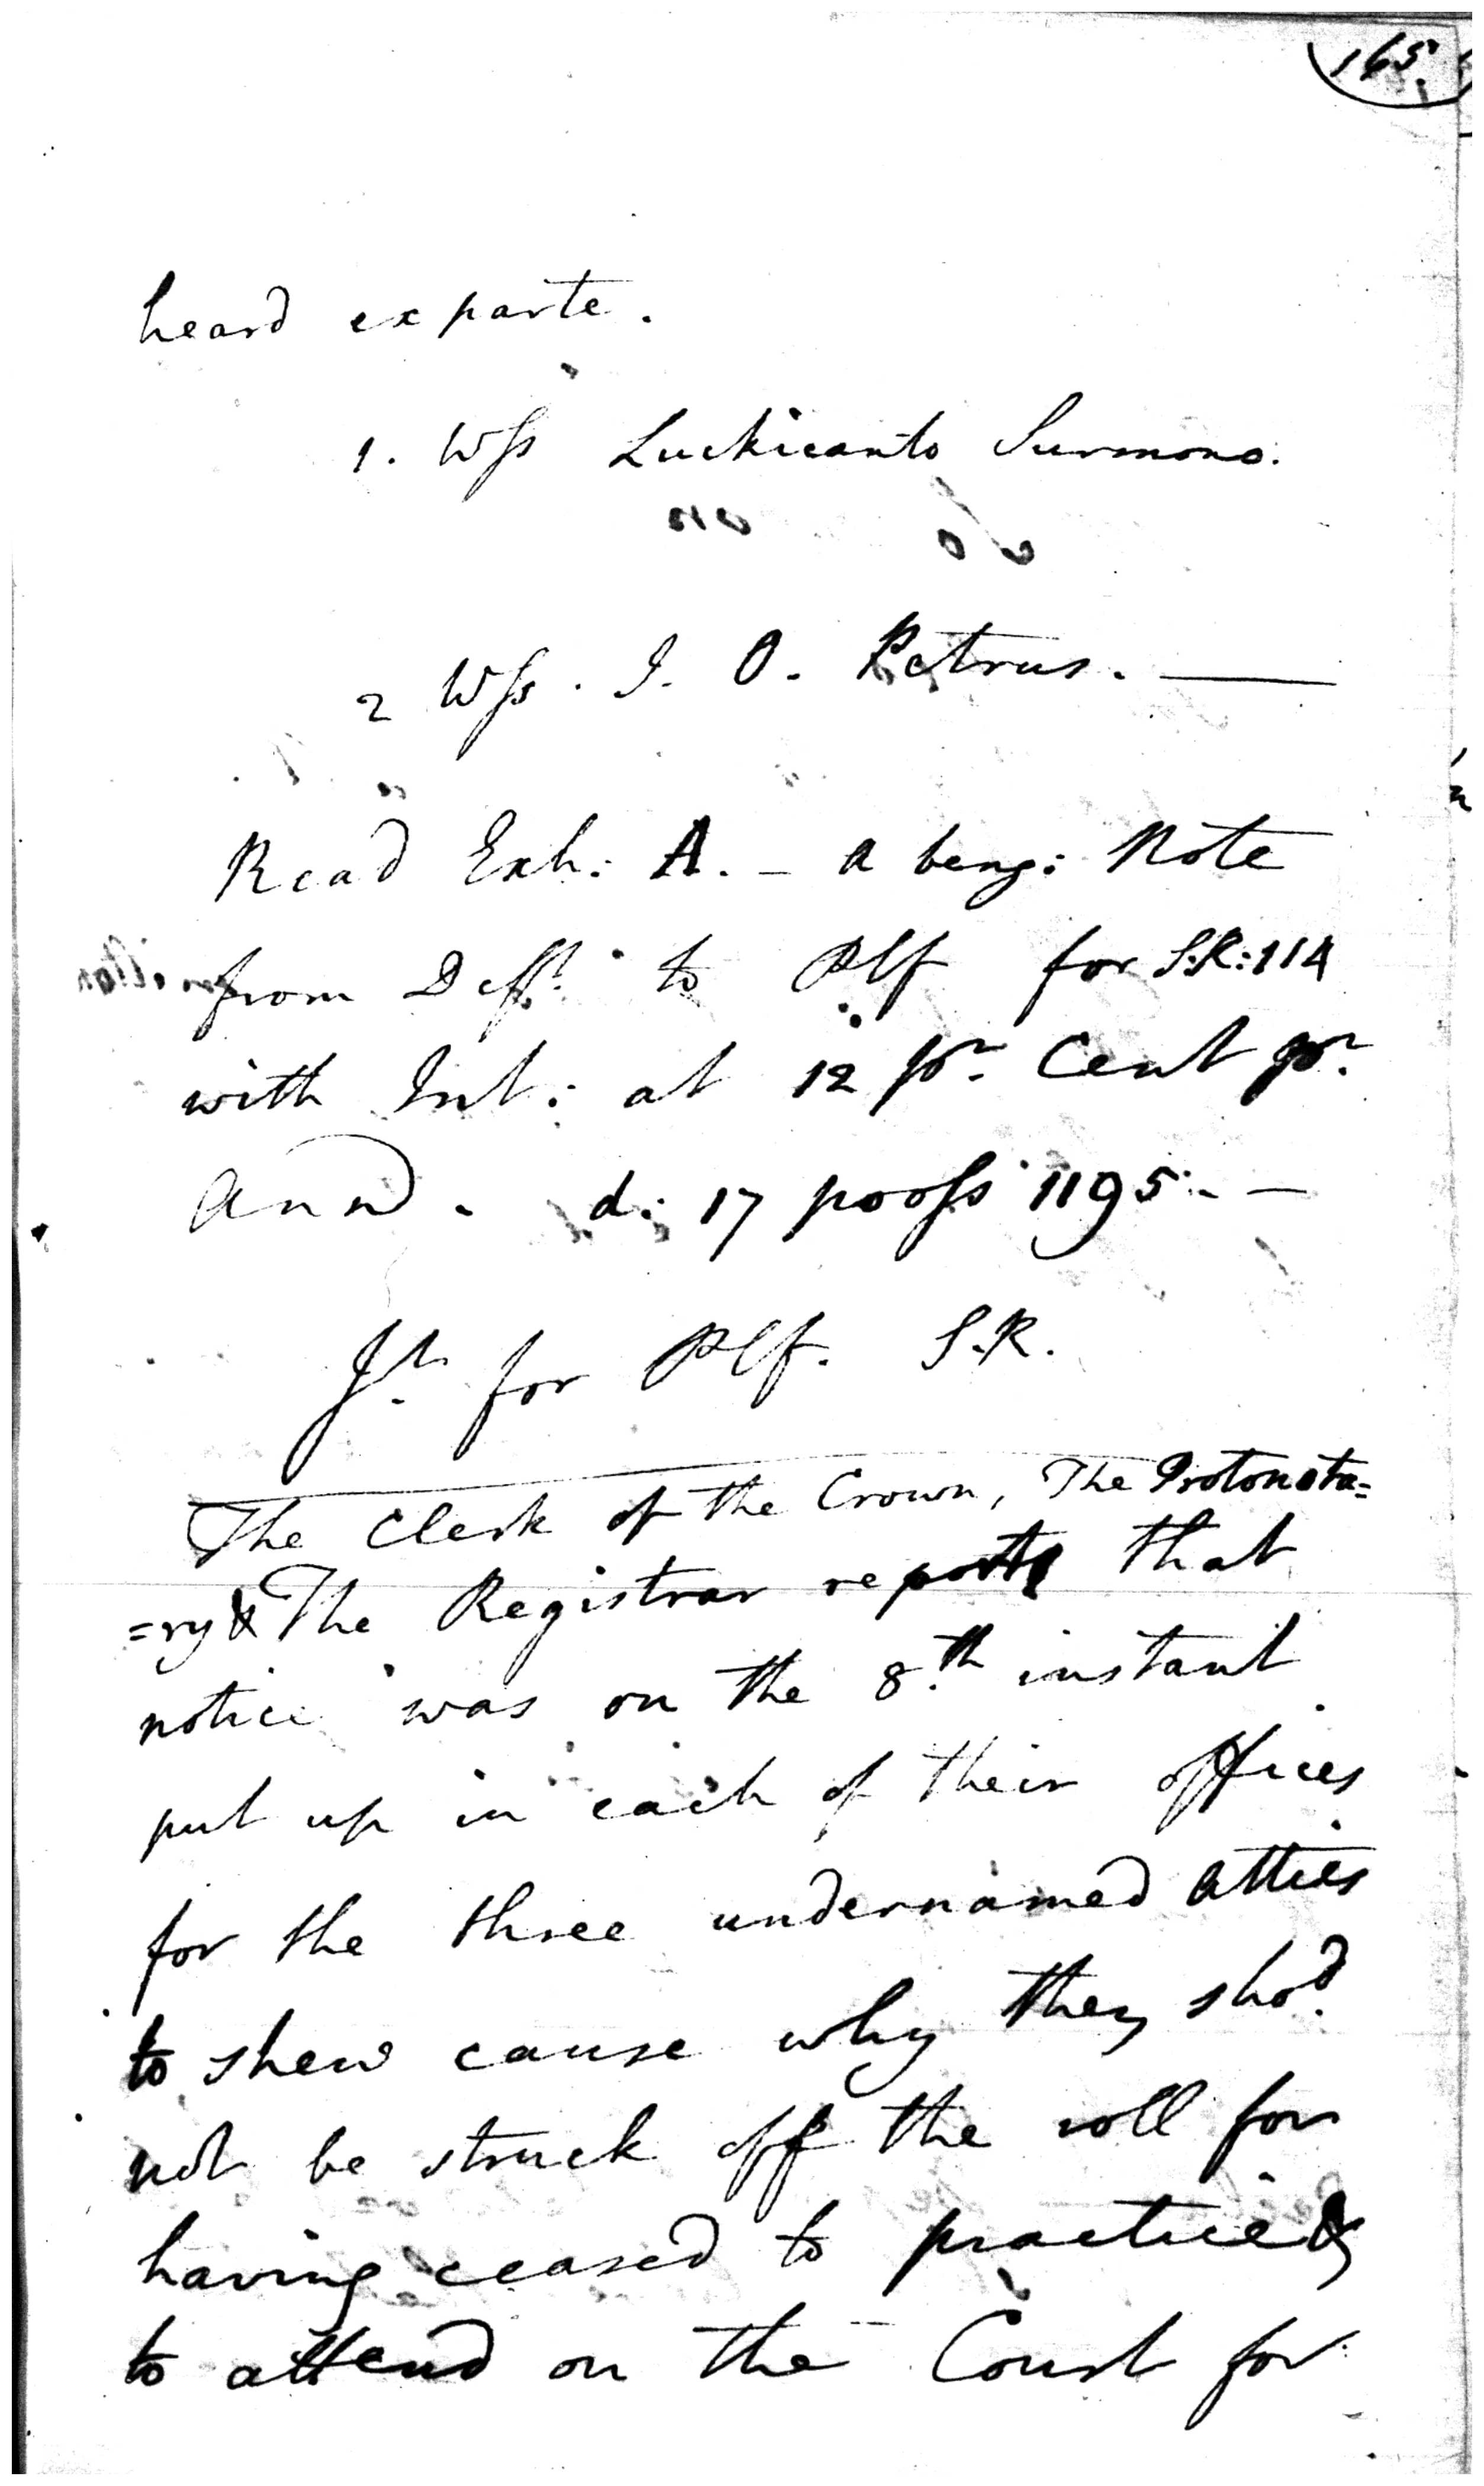 165.
heard ex parte.
1. Wss Luckicanto Surmono.
2 Wss. J. O. Petrus. —
Read Exh: A. – a beng: Note
from Deft. to Plf for S:R: 114
with Int: at 12 pr. Cent pr.
Ann. d: 17 pooss 1195. –
Jt. for Plf. S.R.
The Clerk of the Crown, The Protonota=
=ry & The Registrar reports that
notice was on the 8.th instant
put up in each of their offices
for the three undernamed atties
to shew cause why they shod.
not be struck off the roll for
having ceased to practice &
to attend on the Court for